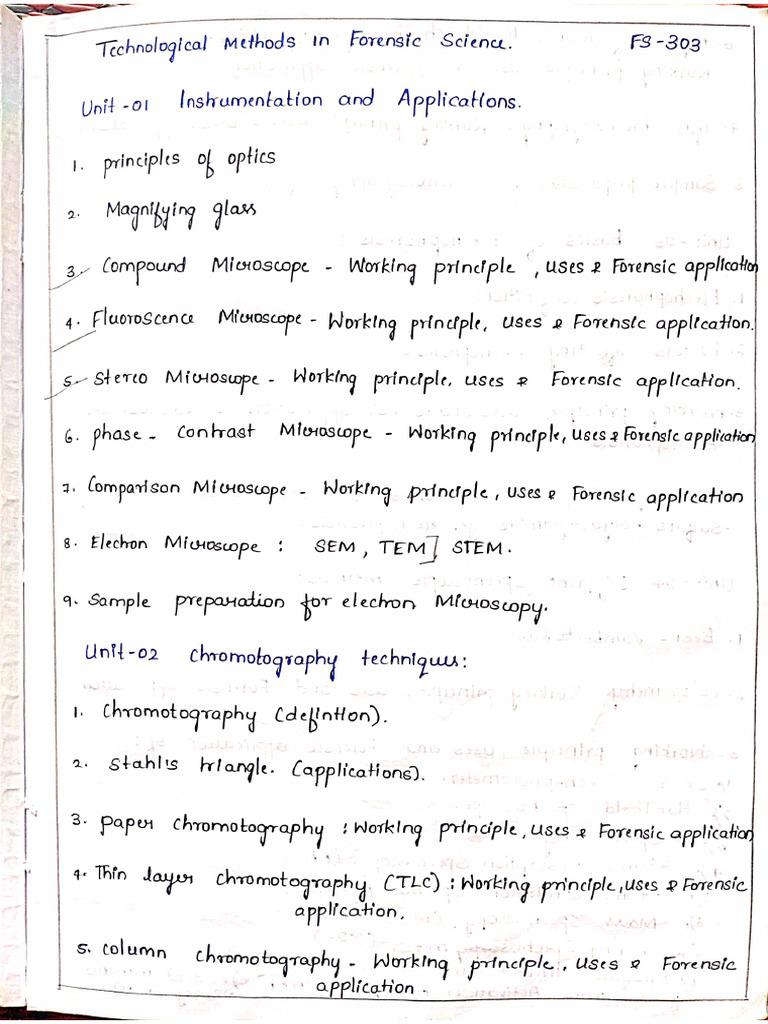 Technological Methods in Forensic Science. FS-303
Unit-01 Instrumentation and Applications.
1. principles of optics
2. Magnifying glass
3. Compound Microscope - Working principle, uses & Forensic application
4. Fluoroscence Microscope - Working principle, uses & Forensic application.
5. Stereo Microscope - Working principle, uses & Forensic application.
6. phase - contrast Microscope - Working principle, uses & Forensic application
7. Comparison Microscope - Working principle, uses & Forensic application
8. Electron Microscope : SEM, TEM] STEM.
9. Sample preparation for electron Microscopy.
Unit-02 chromotography techniques:
1. Chromotography (defintion).
2. Stahl's triangle. (applications).
3. paper chromotography : Working principle, uses & Forensic application
4. Thin layer chromotography (TLC) : Working principle, uses & Forensic
application.
5. column chromotography - Working principle, uses & Forensic
application.